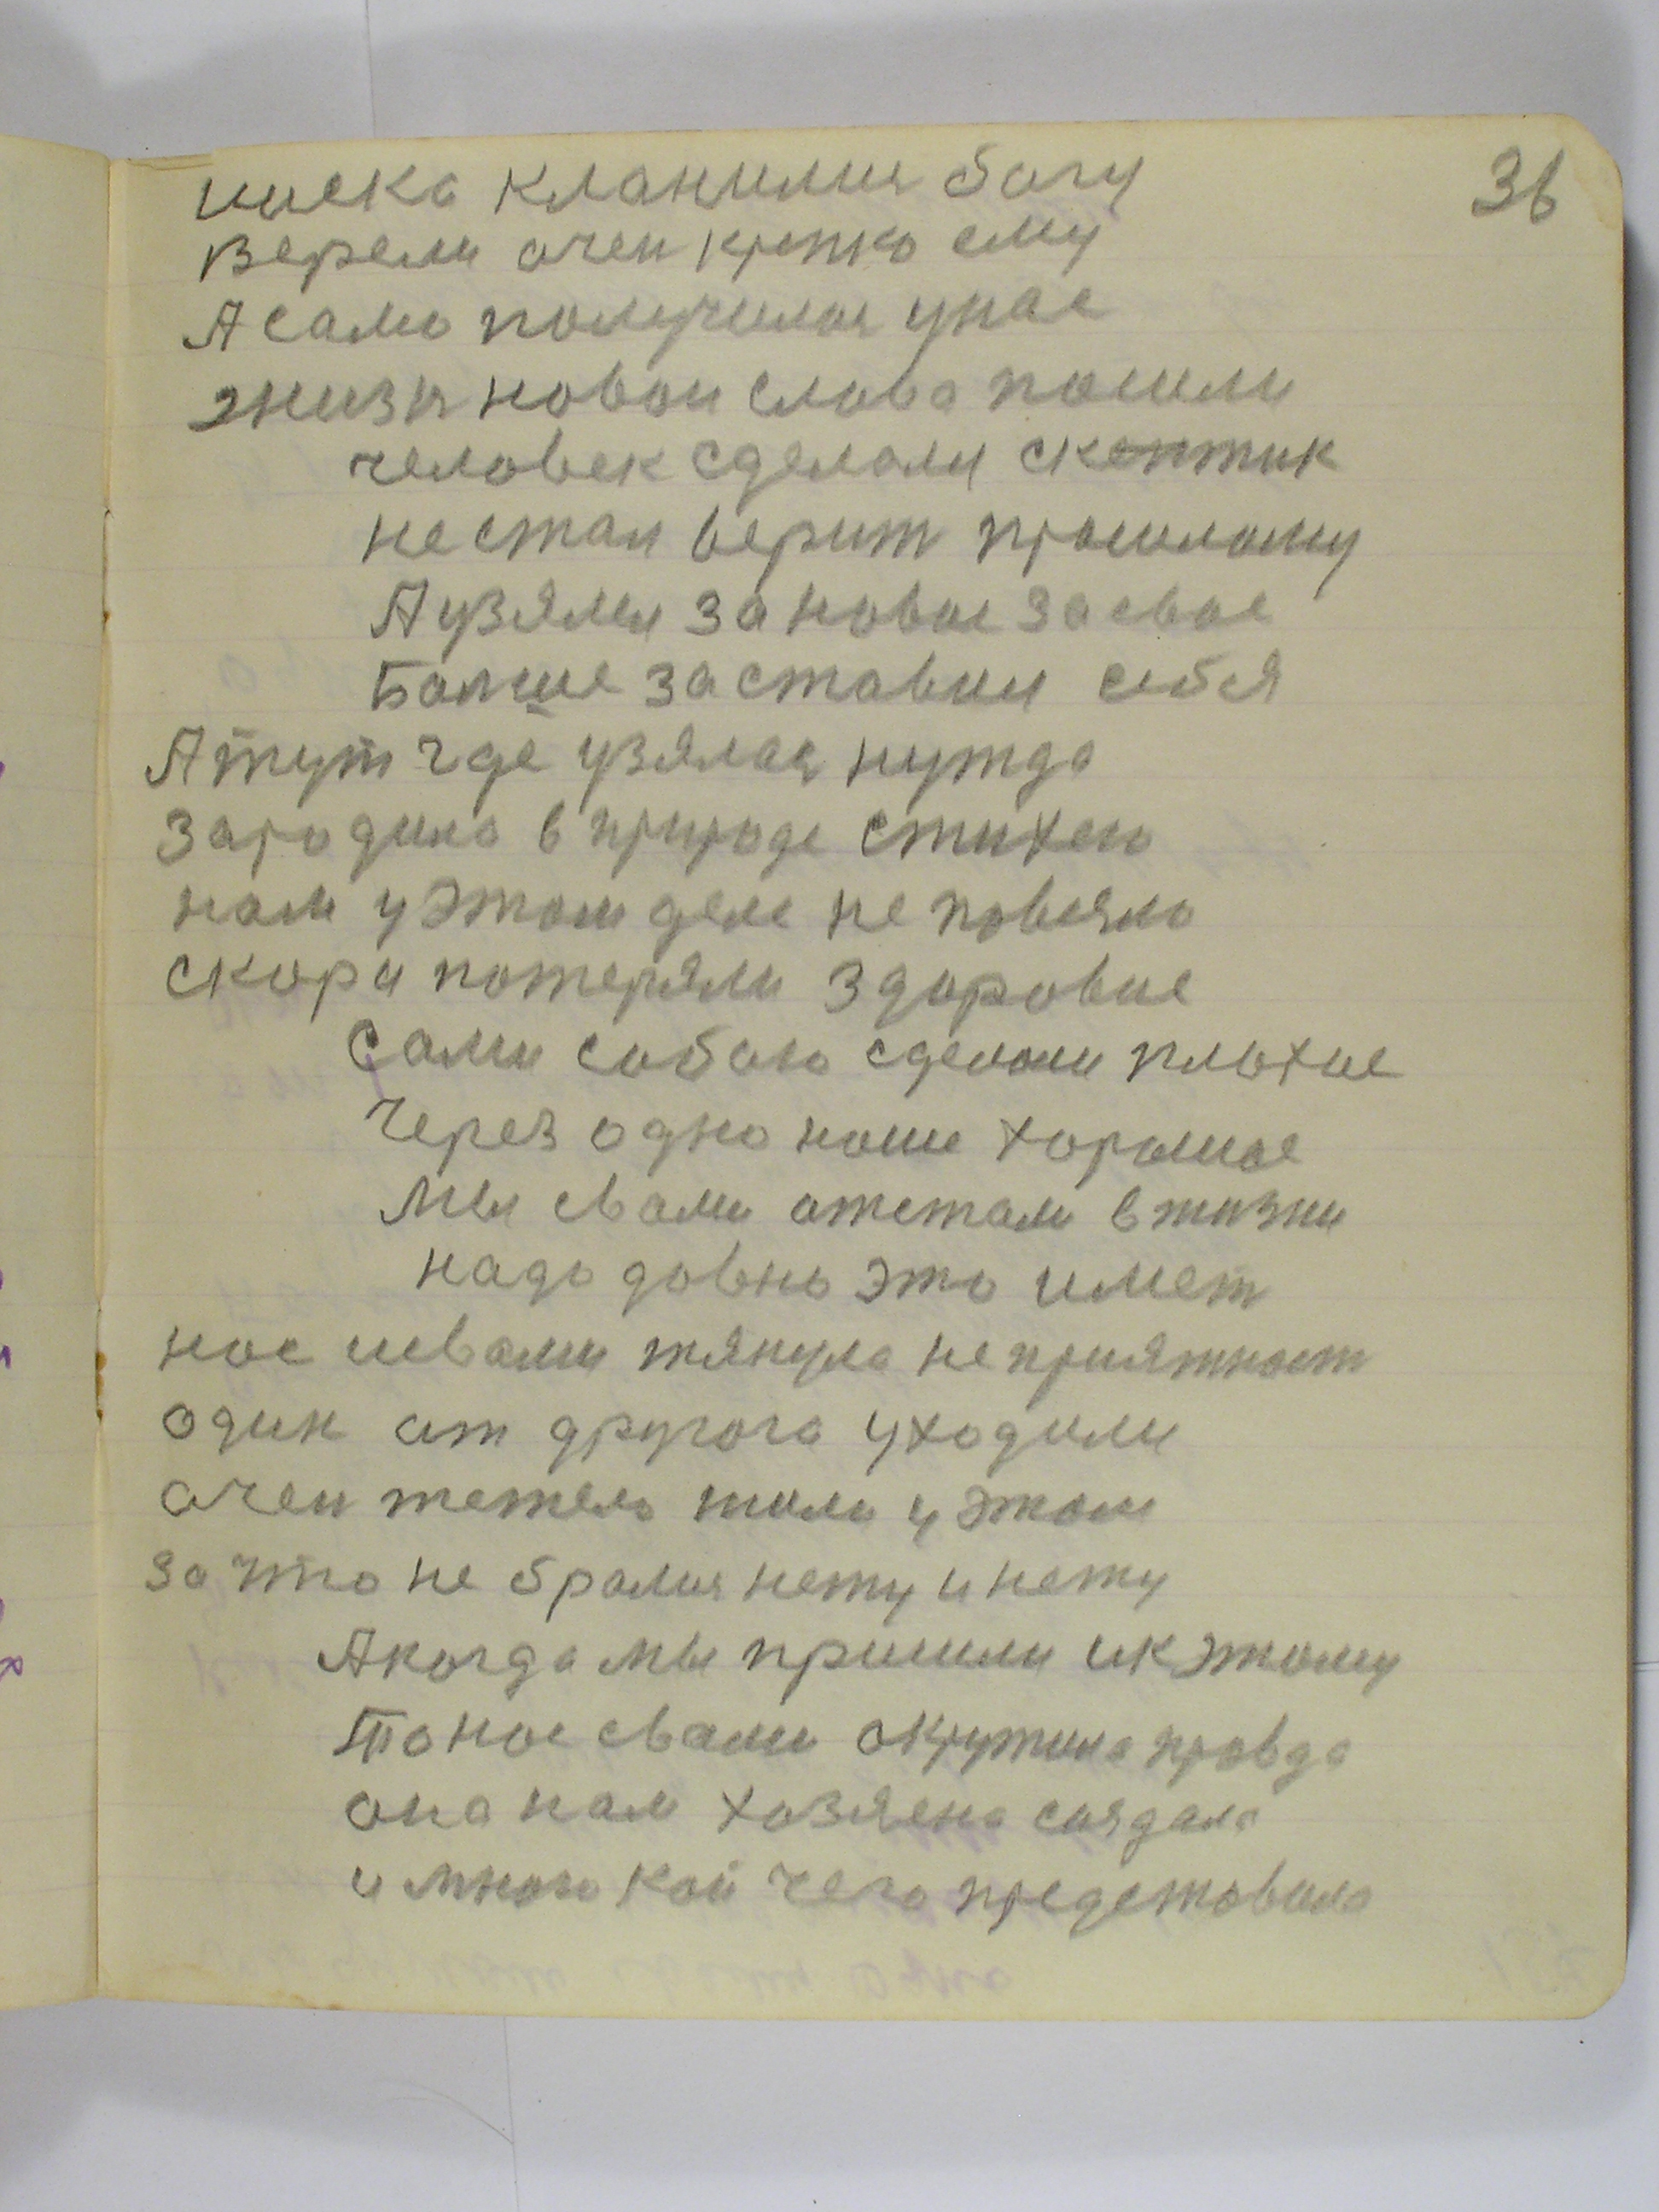 36
ниска кланилися богу
Верели очен крепко ему
А само получилося унас
жизн новои слова пошли
человек сделался скептик
не стал верит прошлому
А узялся за новое за свое
Болше заставил себя
А тут где узялася нужда
Зародила в природе стихею
нам у этом деле не повезло
скора потеряли здоровие
сами собою сделали плохие
Через одно наше хорошое
Мы свами отстали в жизни
надо довно это имет
нас исвами тянула неприятност
один от другога уходили
очен тежело жили у этом
За что не бралися нету и нету
А когда мы пришли ик этому
То нас свами окружила правда
она нам хозяена создала
и много кой чего представила